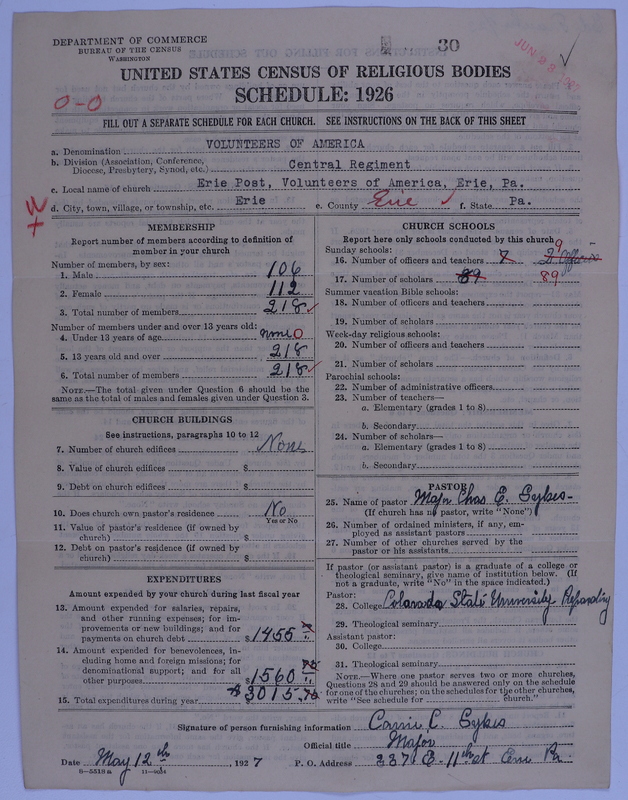 DEPARTMENT OF COMMERCE
BUREAU OF THE CENSUS
WASHINGTON
30
JUN 23
UNITED STATES CENSUS OF RELIGIOUS BODIES
SCHEDULE: 1926
0-0
FILL OUT A SEPARATE SCHEDULE FOR EACH CHURCH. SEE INSTRUCTIONS ON THE BACK OF THIS SHEET
a. Denomination VOLUNTEERS OF AMERICA
b. Division (Association, Conference, Diocese, Presbytery, Synod, etc.) Central Regiment
c. Local name of church Erie Post, Volunteers of America, Erie, Pa.
d. City, town, village, or township, etc. Erie e. County Erie f. State Pa.
MEMBERSHIP
Report number of members according to definition of
member in your church
Number of members by sex:
1. Male 106
2. Female 112
3. Total number of members 218
Number of members under and over 13 years old:
4. Under 13 years of age none 0
5. 13 years old and over 218
6. Total number of members 218
NOTE.—The total given under Question 6 should be the
same as the total of males and females given under Question 3.
CHURCH BUILDINGS
See instructions, paragraphs 10 to 12
7. Number of church edifices None
8. Value of church edifices $
9. Debt on church edifices $
10. Does church own pastor's residence No
Yes or No
11. Value of pastor's residence (if owned by
church) $
12. Debt on pastor's residence (if owned by
church) $
EXPENDITURES
Amount expended by your church during last fiscal year
13. Amount expended for salaries, repairs,
and other running expenses; for im-
provements or new buildings; and for
payments on church debt $1455
14. Amount expended for benevolences, in-
cluding home and foreign missions; for
denominational support; and for all
other purposes $1560
15. Total expenditures during year $3015.
CHURCH SCHOOLS
Report here only schools conducted by this church
Sunday schools:
16. Number of officers and teachers 7 9
17. Number of scholars 89 89
Summer vacation Bible schools:
18. Number of officers and teachers
19. Number of scholars
Week-day religious schools:
20. Number of officers and teachers
21. Number of scholars
Parochial schools:
22. Number of administrative officers
23. Number of teachers—
a. Elementary (grades 1 to 8)
b. Secondary
24. Number of scholars—
a. Elementary (grades 1 to 8)
b. Secondary
PASTOR
25. Name of pastor Major Chas. E. Sykes-
(If church has no pastor, write "None")
26. Number of ordained ministers, if any, em-
ployed as assistant pastors
27. Number of other churches served by the
pastor or his assistants
If pastor (or assistant pastor) is a graduate of a college or
theological seminary, give name of institution below. (If
not a graduate, write "No" in the space indicated.)
Pastor:
28. College Colorada State University
29. Theological seminary
Assistant pastor:
30. College
31. Theological seminary
NOTE.—Where one pastor serves two or more churches,
Questions 28 and 29 should be answered only on the schedule
for one of the churches; on the schedules for the other churches,
write "See schedule for church."
Signature of person furnishing information Carrie C. Sykes
Official title Major
Date May 12th, 1927 P. O. Address 337 E-11th st Erie Pa
8-5518a 11-9054